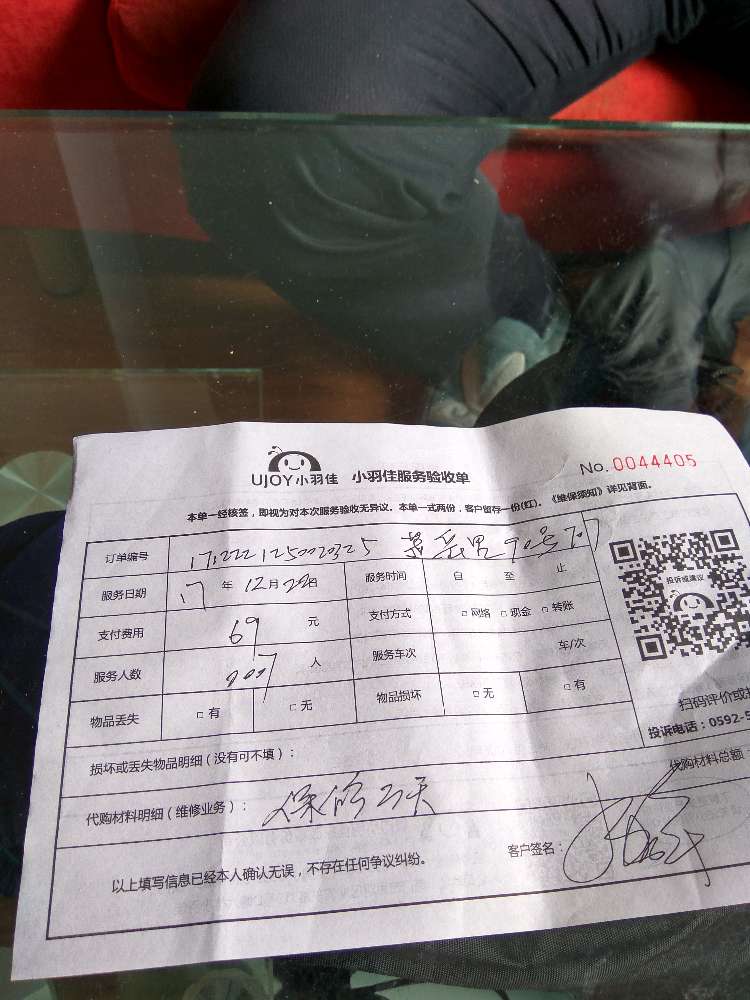 UJOY小羽佳 小羽佳服务验收单 No.0044405
本单一经核签，即视为对本次服务验收无异议。本单一式两份，客户留存一份(红)。《维保须知》详见背面。
订单编号 90号707
服务日期 17 年 12月22日 服务时间 自 至 止
投诉或建议
支付费用 69 元 支付方式 □网络 □现金 □转账
服务人数 人 服务车次 车/次
物品丢失 □有 □无 物品损坏 □无 □有
扫码评价或投
投诉电话：0592-5
损坏或丢失物品明细（没有可不填）：
代购材料总额
代购材料明细（维修业务）： 保修 天
以上填写信息已经本人确认无误，不存在任何争议纠纷。 客户签名：